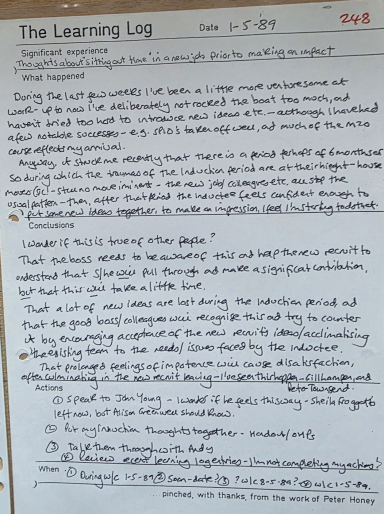 The Learning Log Date 1-5-89 248
Significant experience
Thoughts about 'sitting out time' in a new job prior to making an impact
What happened
During the last few weeks I've been a little more venturesome at
work - up to now I've deliberately not rocked the boat too much, and
haven't tried too hard to introduce new ideas etc. - although I have had
a few notable successes - e.g. taken off well, and much of the
my arrival.
Anyway, it struck me recently that there is a period perhaps of 6 months or
so during which the traumas of the induction period are at their height - house
moves (sic! - still no move iminent - the new job/colleagues etc, all stop the
usual pattern - then, after that period the inductee feels confident enough to
put some new ideas together, to make an impression. I feel I'm starting to do that.
Conclusions
I wonder if this is true of other people?
That the boss needs to be aware of this and help the new recruit to
understand that s/he will pull through and make a significant contribution,
but that this will take a little time.
That a lot of new ideas are lost during the induction period, and
that the good boss/colleagues will recognise this and try to counter
it by encouraging acceptance of the new recruits ideas/acclimatising
the existing team to the needs/issues faced by the inductee.
That prolonged feelings of impotence will cause dissatisfaction,
often culminating in the new recruit leaving - I've seen this happen - Gill Hampson, and
Pete Townsend.
Actions
① Speak to John Young - I wonder if he feels this way - Sheila Froggatt's
left now, but Alison Greenwell should know.
② Put my induction thoughts together - Handout/OHPs
③ Talk them through with Andy
④ Review recent learning log entries - I'm not completing my actions!
When ① During w/c 1-5-89 ② Soon - date? ③ ? w/c 8-5-89? ④ w/c 1-5-89.
...pinched, with thanks, from the work of Peter Honey